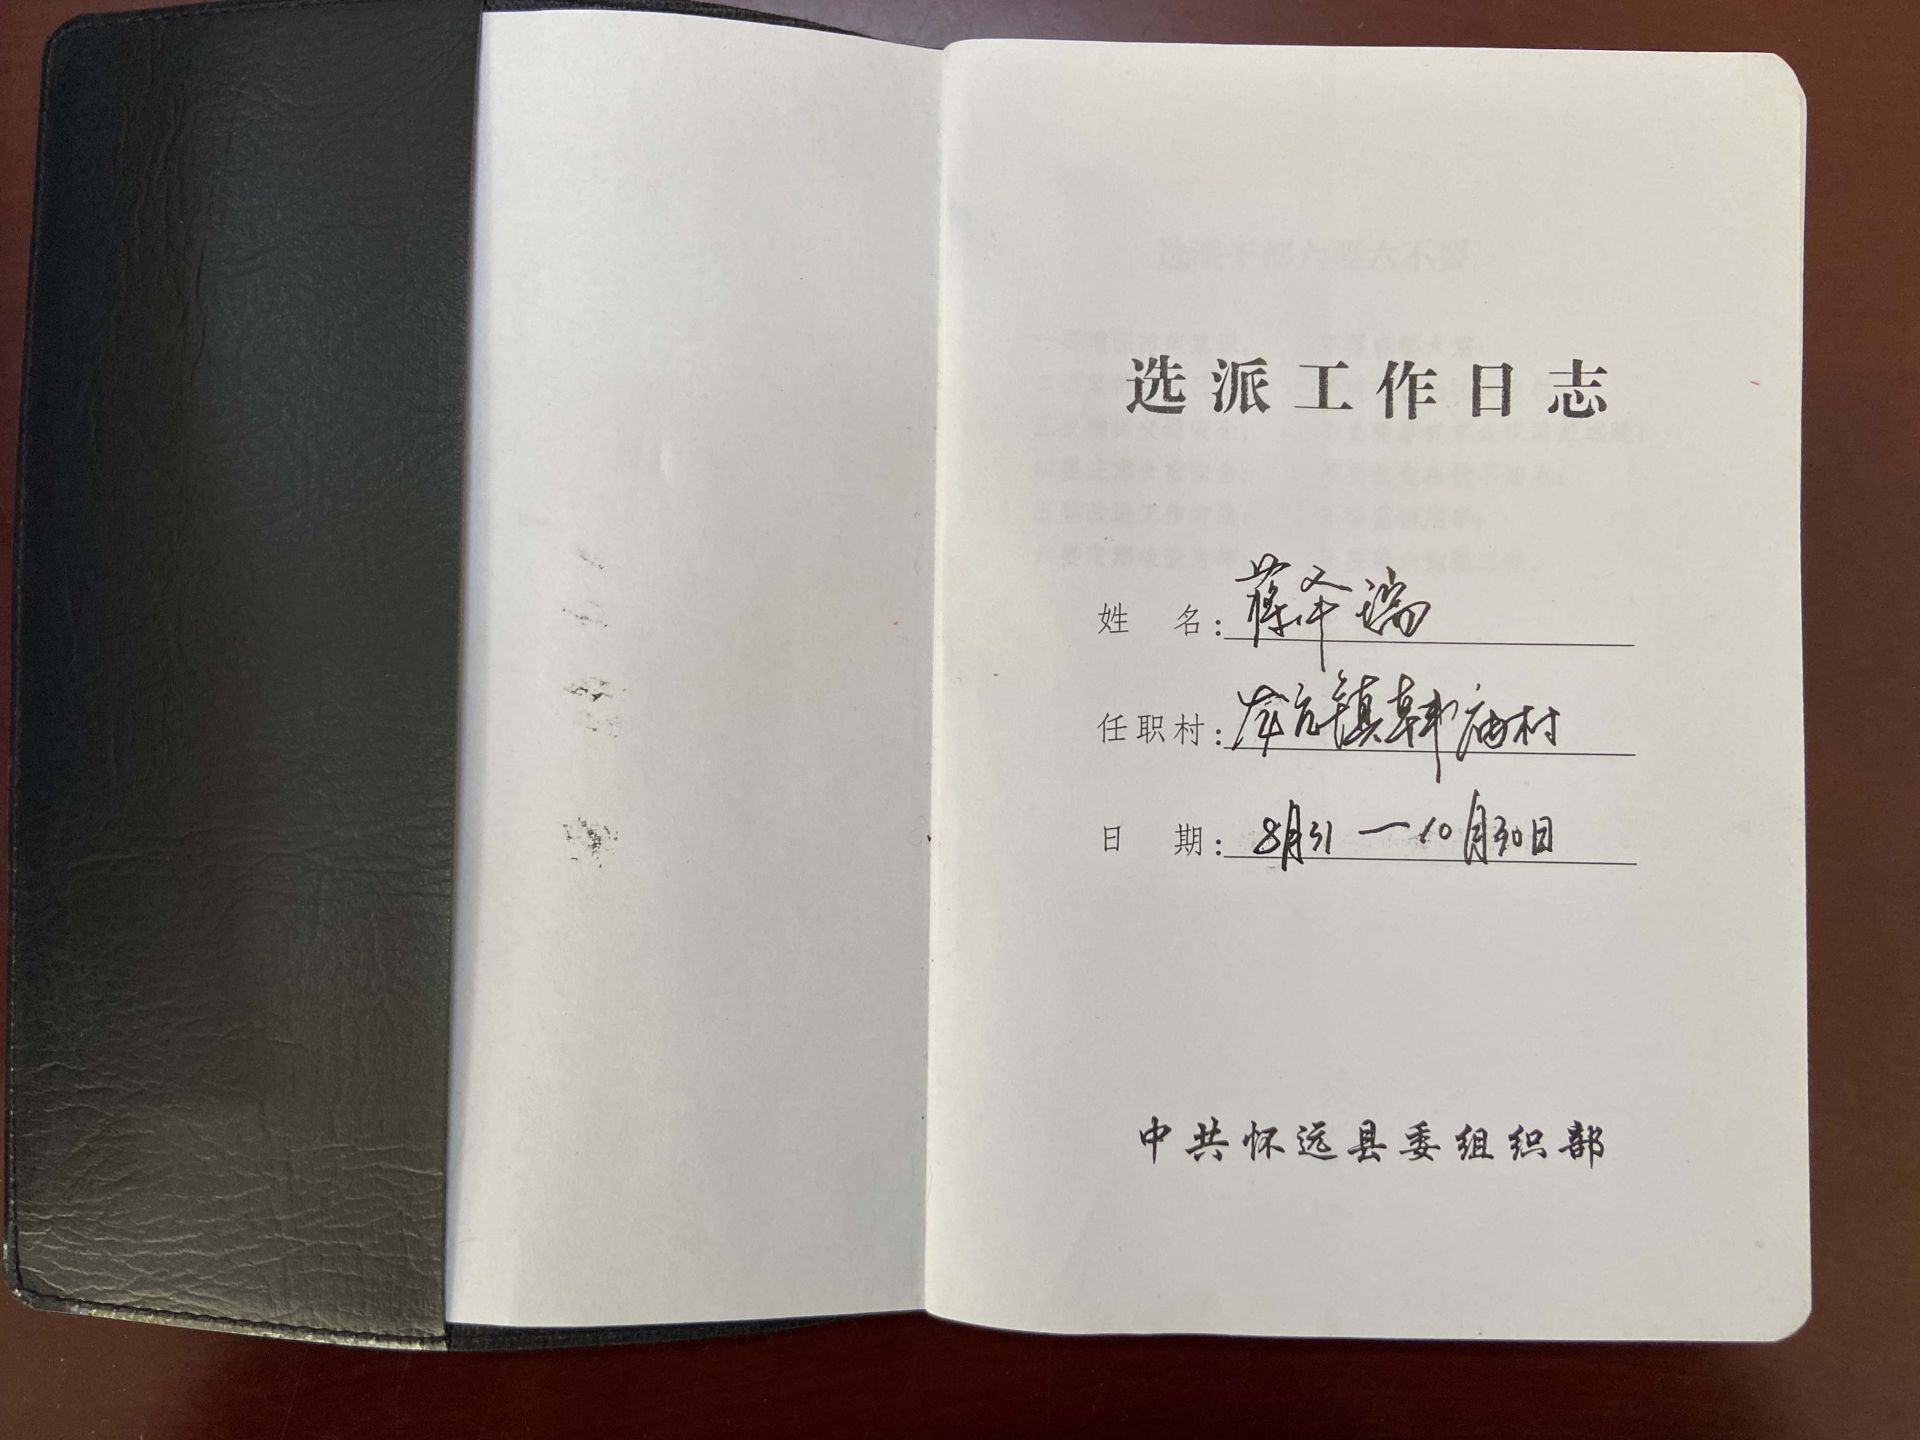 选派工作日志
姓名：蒋泽瑞
任职村：荆芡镇韩庙村
日期：8月31—10月30日
中共怀远县委组织部